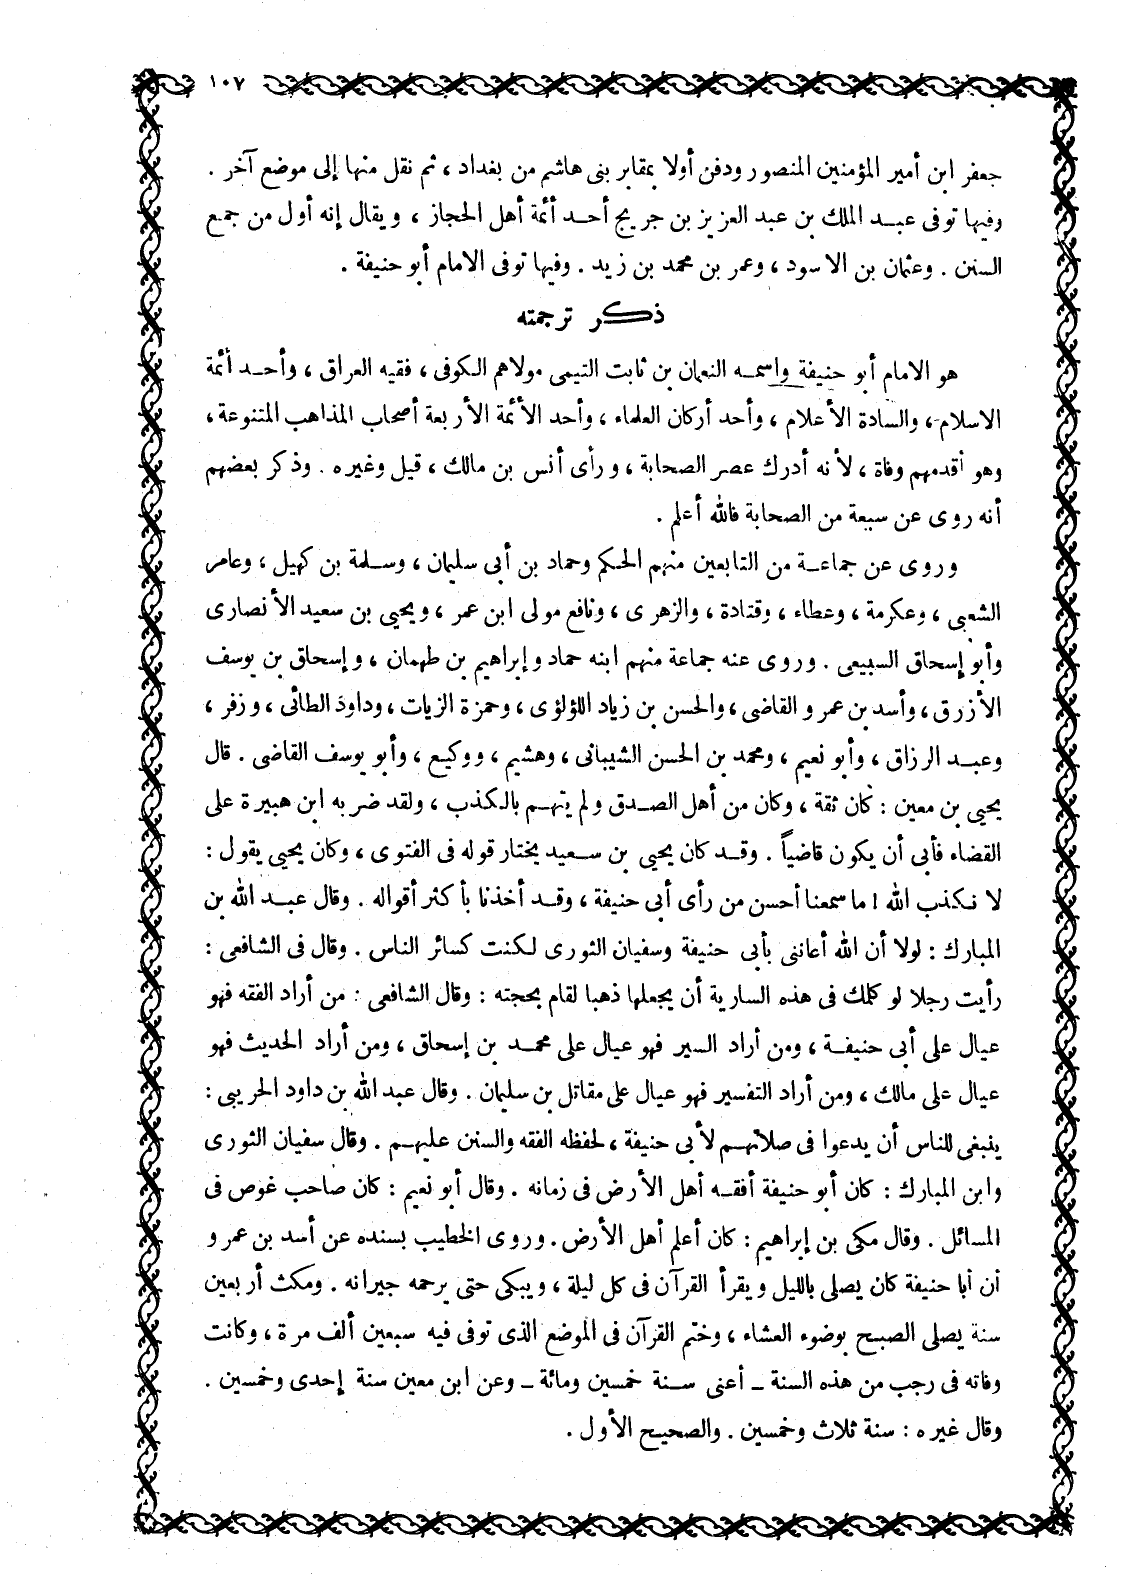 ١٠٧
جعفر ابن أمير المؤمنين المنصور ودفن أولا بمقابر بنى هاشم من بغداد ، ثم نقل منها إلى موضع آخر .
وفيها توفى عبد الملك بن عبد العزيز بن جريج أحد أئمة أهل الحجاز ، ويقال إنه أول من جمع
السنن . وعثمان بن الاسود ، وعمر بن محمد بن زيد . وفيها توفى الامام أبو حنيفة .
ذكر ترجمته
هو الامام أبو حنيفة واسمه النعمان بن ثابت التيمى مولاهم الكوفى ، فقيه العراق ، وأحد أئمة
الاسلام ، والسادة الأعلام ، وأحد أركان العلماء ، وأحد الأئمة الأربعة أصحاب المذاهب المتنوعة ،
وهو أقدمهم وفاة ، لأنه أدرك عصر الصحابة ، ورأى أنس بن مالك ، قيل وغيره . وذكر بعضهم
أنه روى عن سبعة من الصحابة فالله أعلم .
وروى عن جماعة من التابعين منهم الحكم وحماد بن أبى سليمان ، وسلمة بن كهيل ، وعامر
الشعبى ، وعكرمة ، وعطاء ، وقتادة ، والزهرى ، ونافع مولى ابن عمر ، ويحيى بن سعيد الأنصارى
وأبو إسحاق السبيعى . وروى عنه جماعة منهم ابنه حماد وإبراهيم بن طهمان ، وإسحاق بن يوسف
الأزرق ، وأسد بن عمرو القاضى ، والحسن بن زياد اللؤلؤى ، وحمزة الزيات ، وداود الطائى ، وزفر ،
وعبد الرزاق ، وأبو نعيم ، ومحمد بن الحسن الشيبانى ، وهشيم ، ووكيع ، وأبو يوسف القاضى . قال
يحيى بن معين : كان ثقة ، وكان من أهل الصدق ولم يتهم بالكذب ، ولقد ضربه ابن هبيرة على
القضاء فأبى أن يكون قاضياً . وقد كان يحيى بن سعيد يختار قوله فى الفتوى ، وكان يحيى يقول :
لا نكذب الله ! ما سمعنا أحسن من رأى أبى حنيفة ، وقد أخذنا بأكثر أقواله . وقال عبد الله بن
المبارك : لولا أن الله أعاننى بأبى حنيفة وسفيان الثورى لكنت كسائر الناس . وقال فى الشافعى :
رأيت رجلا لو كلمك فى هذه السارية أن يجعلها ذهبا لقام بحجته : وقال الشافعى : من أراد الفقه فهو
عيال على أبى حنيفة ، ومن أراد السير فهو عيال على محمد بن إسحاق ، ومن أراد الحديث فهو
عيال على مالك ، ومن أراد التفسير فهو عيال على مقاتل بن سليمان . وقال عبد الله بن داود الحريبى :
ينبغى للناس أن يدعوا فى صلاتهم لأبى حنيفة ، لحفظه الفقه والسنن عليهم . وقال سفيان الثورى
وابن المبارك : كان أبو حنيفة أفقه أهل الأرض فى زمانه . وقال أبو نعيم : كان صاحب غوص فى
المسائل . وقال مكى بن إبراهيم : كان أعلم أهل الأرض . وروى الخطيب بسنده عن أسد بن عمرو
أن أبا حنيفة كان يصلى بالليل ويقرأ القرآن فى كل ليلة ، ويبكى حتى يرحمه جيرانه . ومكث أربعين
سنة يصلى الصبح بوضوء العشاء ، وختم القرآن فى الموضع الذى توفى فيه سبعين ألف مرة ، وكانت
وفاته فى رجب من هذه السنة ـ أعنى سنة خمسين ومائة ـ وعن ابن معين سنة إحدى وخمسين .
وقال غيره : سنة ثلاث وخمسين . والصحيح الأول .